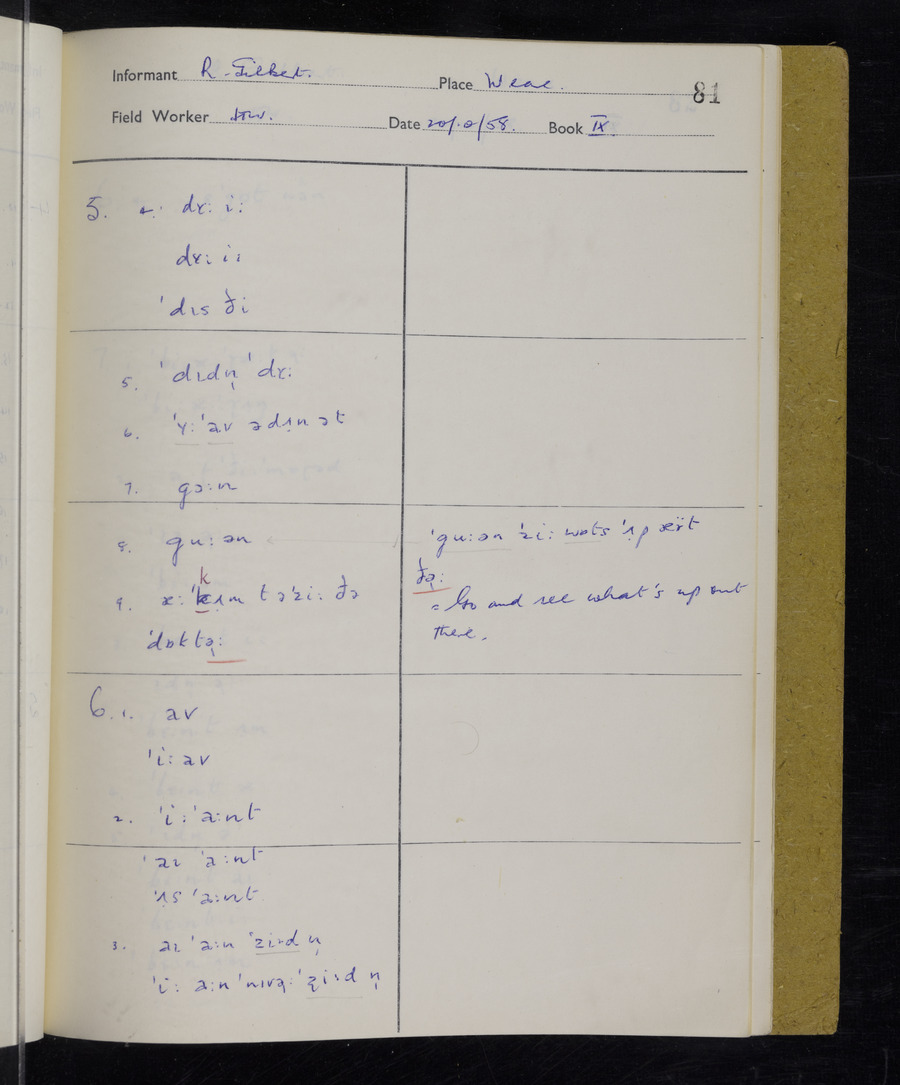 Informant R. Gilbert. Place Weare.
81
Field Worker Date Book IX
5. 4. dɤ: i:
dɤ: i:
ˈdɪs ði
5. ˈdɪdn̩ ˈdɤ:
6. ˈɤ: ˈav ədʌn ət
7. gɔ:n
8. gu:ən
ˈgu:ən ˈzi: wɒts ˈʌp æʏt
ðə̣:
= Go and see what's up out
there.
k
ˈkʌm tə ˈzi: ðə
ˈdɒktə̣:
6. 1. av
ˈi: av
2. ˈi: ˈa:nt
ˈaɪ ˈa:nt
ˈʌs ˈa:nt
3. aɪ ˈa:n ˈzi:d n̩
ˈi: a:n ˈnɪvə̣: ˈzi:d n̩